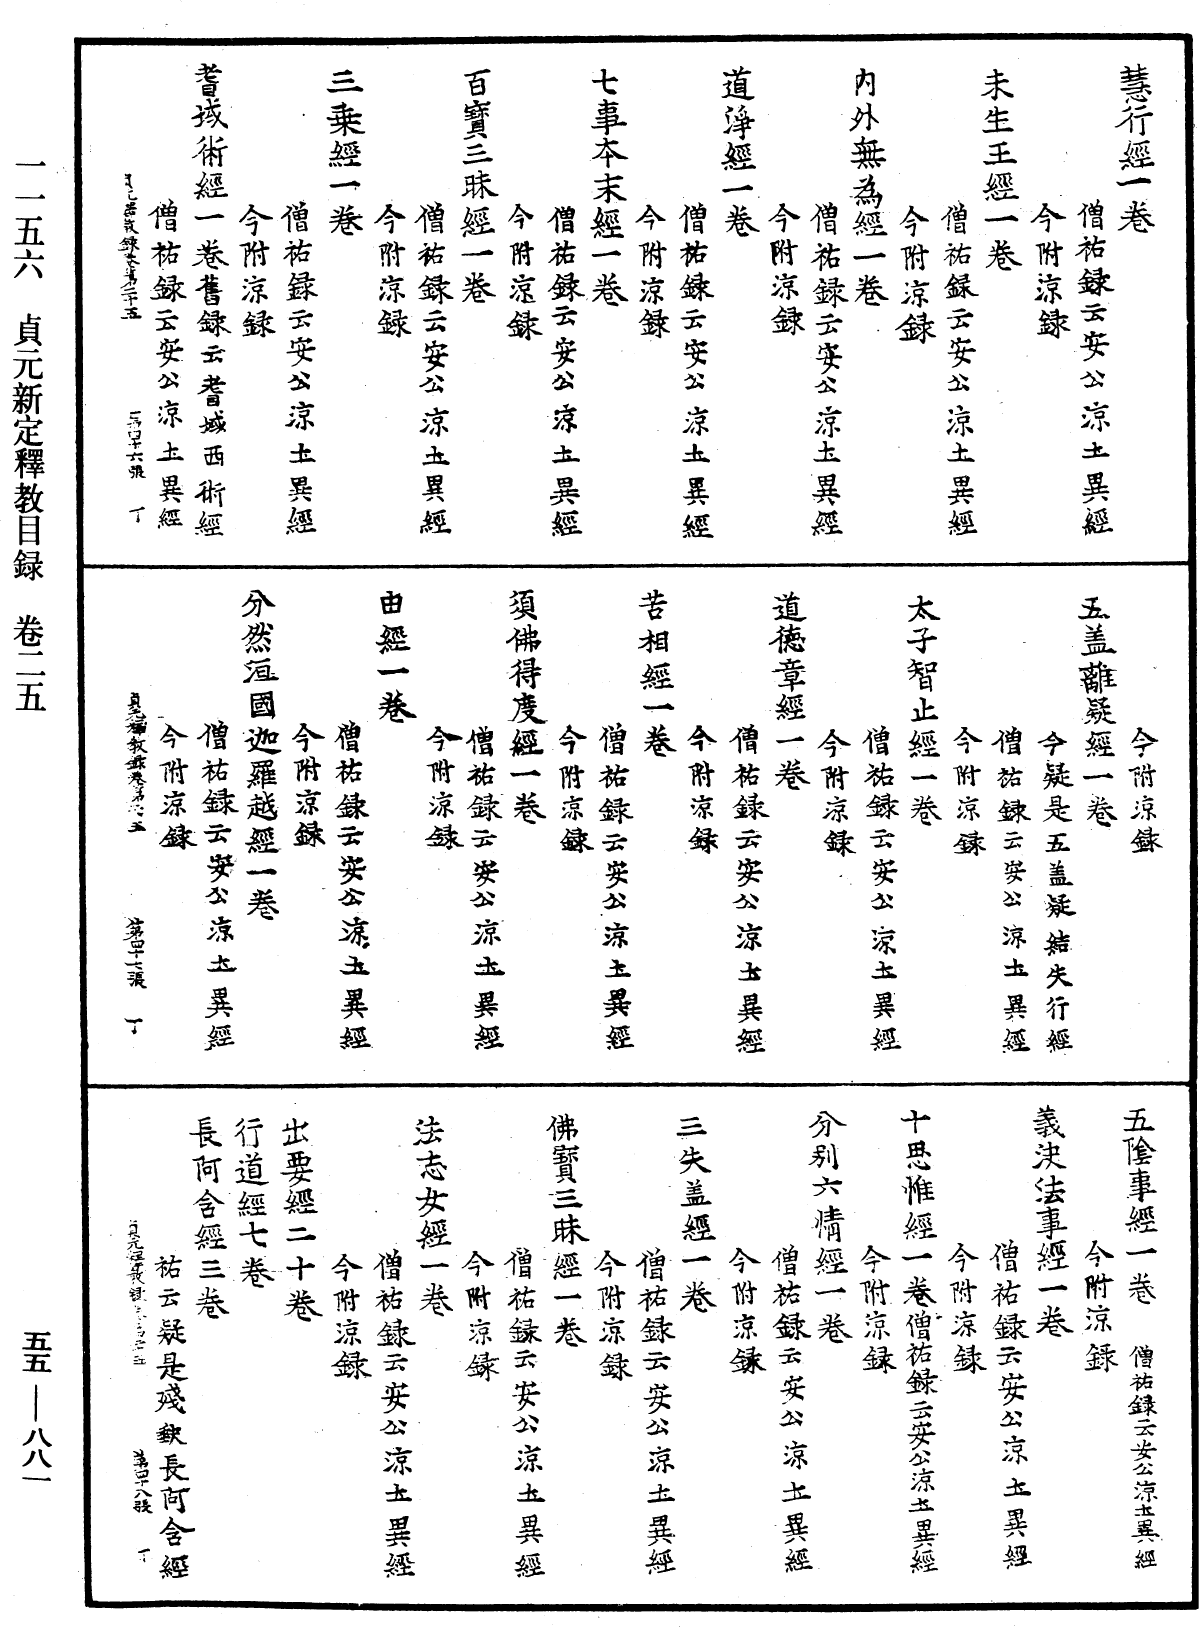 慧行經一卷
僧祐録云安公涼土異經
今附涼録
未生王經一卷
僧祐録云安公涼土異經
今附涼録
内外無為經一卷
僧祐録云安公涼土異經
今附涼録
道淨經一卷
僧祐録云安公涼土異經
今附涼録
七事本末經一卷
僧祐録云安公涼土異經
今附涼録
百寶三昧經一卷
僧祐録云安公涼土異經
今附涼録
三乗經一卷
僧祐録云安公涼土異經
今附涼録
耆域術經一卷舊録云耆域四術經
僧祐録云安公涼土異經
第四十六張 丁
今附涼録
五盖離疑經一卷
今疑是五盖疑結失行經
僧祐録云安公涼土異經
今附涼録
太子智止經一卷
僧祐録云安公涼土異經
今附涼録
道德章經一卷
僧祐録云安公涼土異經
今附涼録
苦相經一卷
僧祐録云安公涼土異經
今附涼録
須佛得度經一卷
僧祐録云安公涼土異經
今附涼録
由經一卷
僧祐録云安公涼土異經
今附涼録
分然洹國迦羅越經一卷
僧祐録云安公涼土異經
今附涼録
第四十七張 丁
五陰事經一卷 僧祐録云安公涼土異經
今附涼録
義決法事經一卷
僧祐録云安公涼土異經
今附涼録
十思惟經一卷僧祐録云安公涼土異經
今附涼録
分别六情經一卷
僧祐録云安公涼土異經
今附涼録
三失盖經一卷
僧祐録云安公涼土異經
今附涼録
佛寶三昧經一卷
僧祐録云安公涼土異經
今附涼録
法志女經一卷
僧祐録云安公涼土異經
今附涼録
出要經二十卷
行道經七卷
長阿含經三卷
祐云疑是殘缺長阿含經
第四十八張 丁
一一五六 貞元新定釋教目録 卷二五
五五—八八一